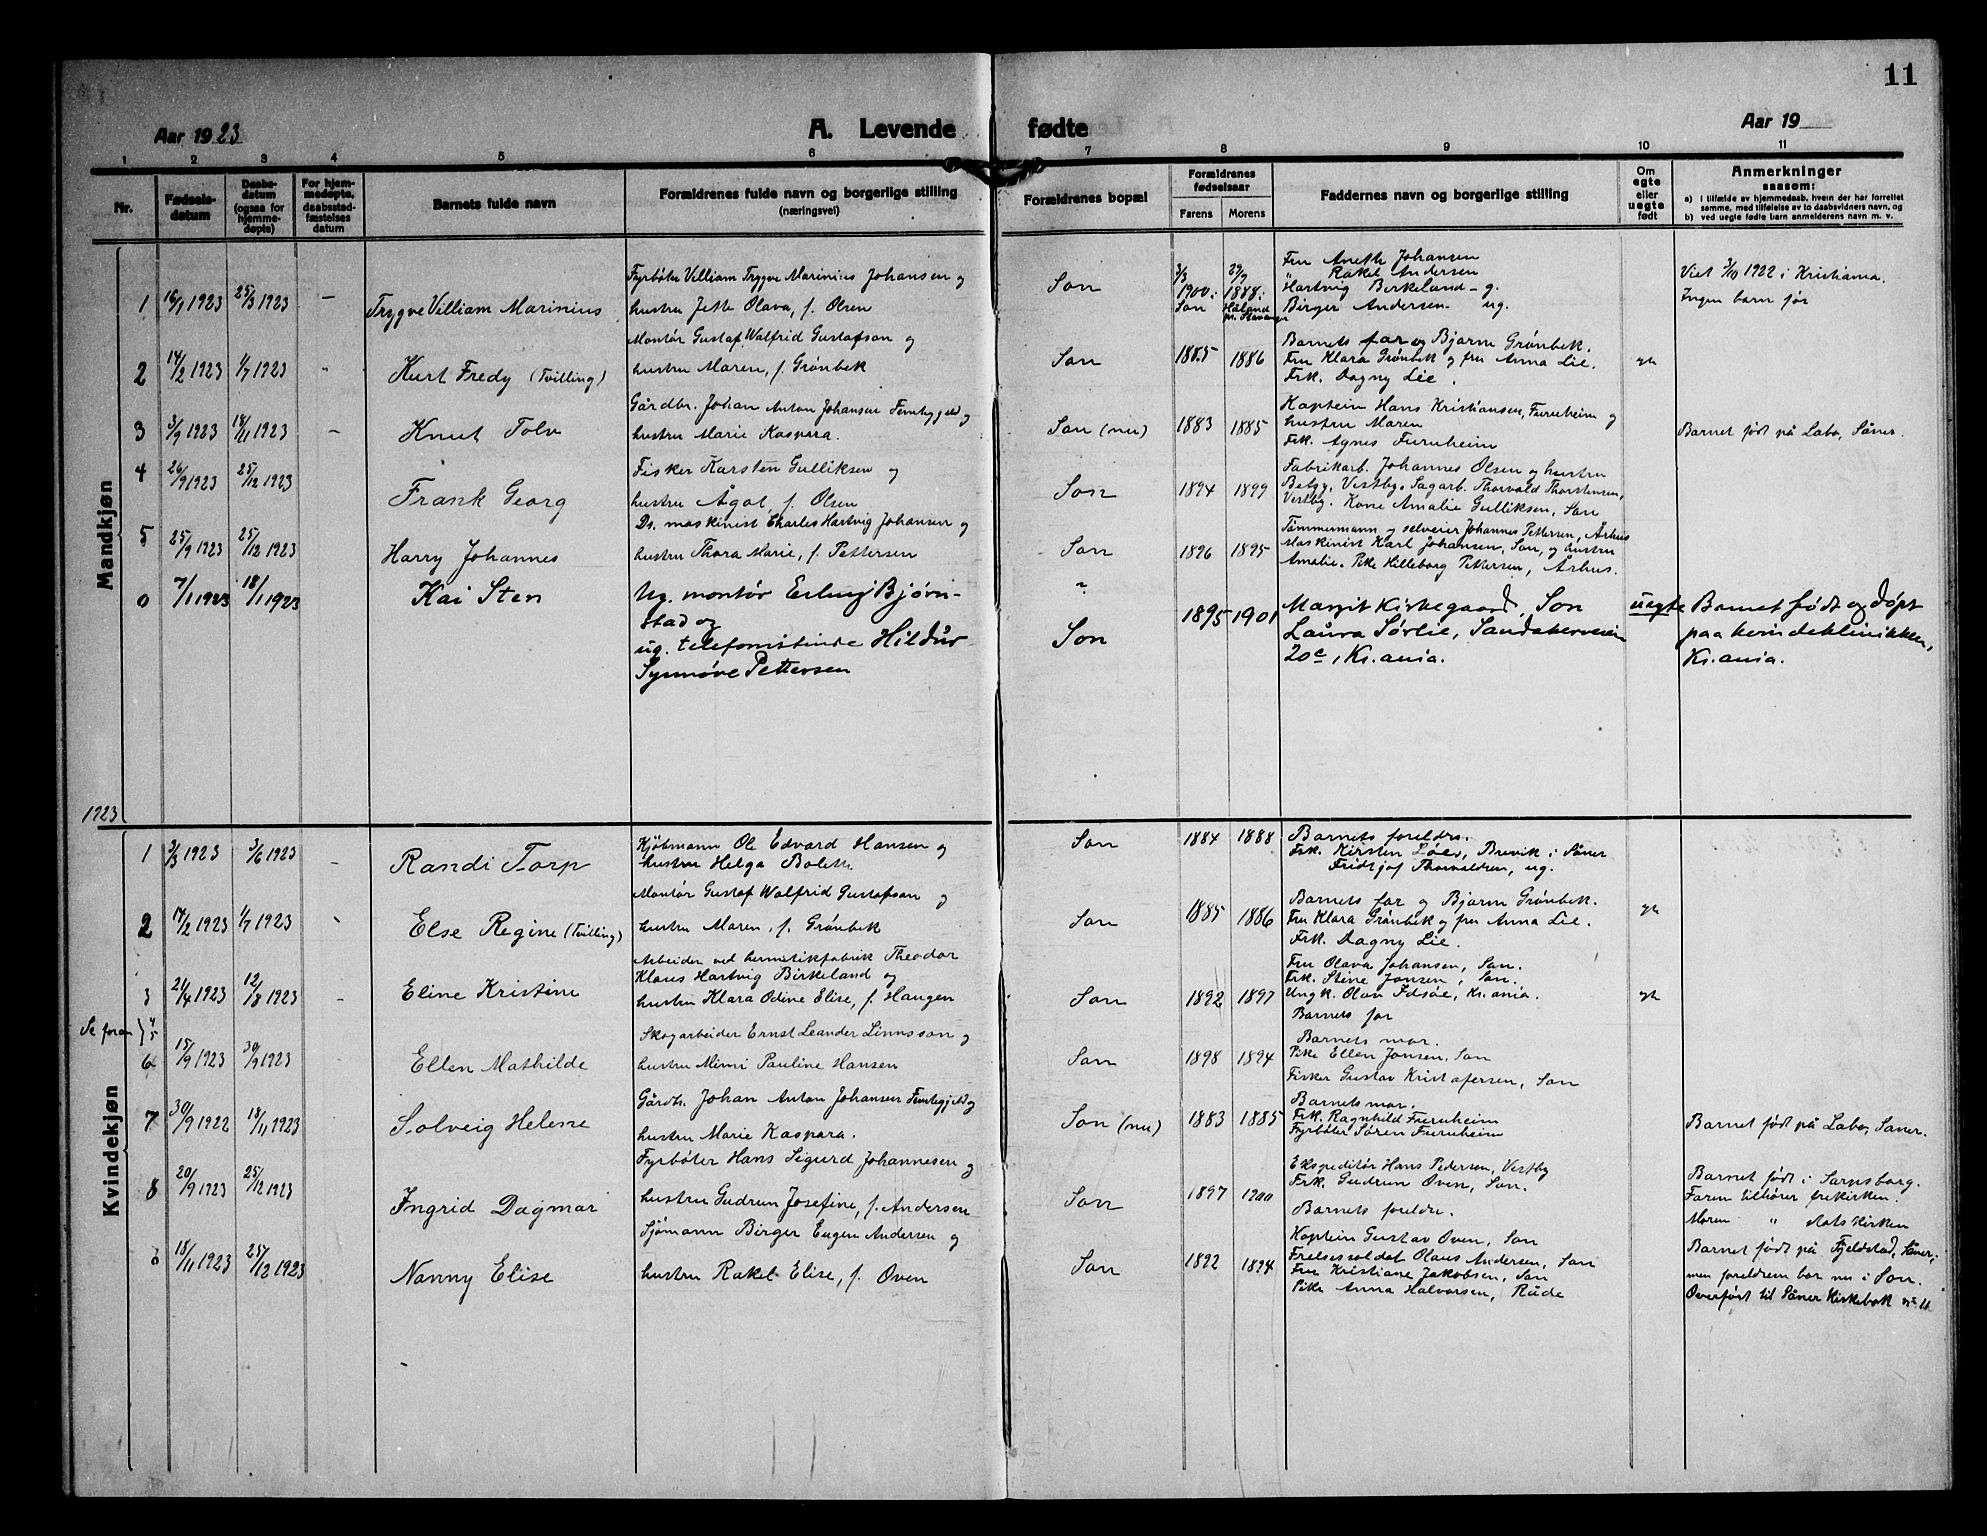 11
Aar 1923
A. Levende fødte
Aar 19
1 2 3 4 5 6 7 8 9 10 11
Nr.
Fødsels-
datum
Daabs-
datum
(ogsaa for
hjemme-
døpte)
For hjem-
medøpte,
daabsstad-
fæstelses
datum
Barnets fulde navn
Forældrenes fulde navn og borgerlige stilling
(næringsvei)
Forældrenes bopæl
Forældrenes
fødselsaar
Farens Morens
Faddernes navn og borgerlige stilling
Om
egte
eller
uegte
født
Anmerkninger
saasom:
a) i tilfælde av hjemmedaab, hvem der har forrettet
samme, med tilføielse av to daabsvidners navn, og
b) ved uegte fødte barn anmelderens navn m. v.
Mandkjøn
1 16/1 1923 25/3 1923 – Trygve Villiam Marinius
Fyrbøter Villiam Trygve Marinius Johansen og
hustru Jette Olava, f. Olsen
Son
3/3 1900: Son
29/9 1888: Håland pr. Stavanger
Fru Aneth Johansen
" Rakel Andersen
Hartvig Birkeland – g.
Birger Andersen – ug.
Viet 3/10 1922 i Kristiania.
Ingen barn før
2 14/2 1923 1/7 1923 " Kurt Fredy (Tvilling)
Montør Gustaf Walfrid Gustafson og
hustru Maren, f. Grønbek
Son 1885 1886
Barnets far og Bjarne Grønbek.
Fru Klara Grønbek og fru Anna Lie.
Frk. Dagny Lie.
gte
3 3/9 1923 18/11 1923 – Knut Tolv
Gårdbr. Johan Anton Johansen Femhgjeld og
hustru Marie Kaspara.
Son (nu) 1883 1885
Kaptein Hans Kristiansen, Furuheim og
hustru Maren
Frk. Agnes Furuheim
Barnet født på Labo, Såner.
4 26/9 1923 25/12 1923 Frank Georg
Fisker Karsten Gulliksen og
hustru Ågot, f. Olsen
Son 1894 1899
Fabrikarb. Johannes Olsen og hustru
Betzy, Vestby. Sagarb. Thorvald Thorstensen,
Vestby. Kone Amalie Gulliksen, Son
5 25/9 1923 25/12 1923 Harry Johannes
Ds. maskinist Charles Hartvig Johansen og
hustru Thora Marie, f. Pettersen
Son 1896 1895
Tømmermann og selveier Johannes Pettersen, Århus
Maskinist Karl Johansen, Son, og hustru
Amalie. Pike Hilleborg Pettersen, Århus.
0 7/1 1923 18/1 1923 Kai Sten
Ug. montør Erling Bjørn-
stad og
ug. telefonistinde Hildur
Synnøve Pettersen
"
Son 1895 1901
Margit Kirkegaard, Son
Laura Sørlie, Sandakerveien
20c, Kr.ania.
uegte
Barnet født og døpt
paa kvindeklinikken,
Kr.ania.
1923
Kvindekjøn
1 3/3 1923 3/6 1923 – Randi Torp
Kjøbmann Ole Edvard Hansen og
hustru Helga Bolette
Son 1884 1888
Barnets foreldre.
Frk. Kirsten Løes, Brevik i Såner
Fridtjof Thorvaldsen, ug.
2 14/2 1923 1/7 1923 – Else Regine (Tvilling)
Montør Gustaf Walfrid Gustafson og
hustru Maren, f. Grønbek
Son 1885 1886
Barnets far og Bjarne Grønbek.
Fru Klara Grønbek og fru Anna Lie.
Frk. Dagny Lie.
gte
3 21/4 1923 12/8 1923 – Eline Kristine
Arbeider ved hermetikfabrik Theodor
Klaus Hartvig Birkeland og
hustru Klara Odine Elise, f. Haugen
Son 1892 1897
Fru Olava Johansen, Son.
Frk. Stine Jonsen, Son.
Ungk. Olav Idsøe, Kr.ania.
Barnets far
gte
Se foran 4 5
6 15/9 1923 30/9 1923 Ellen Mathilde
Skogarbeider Ernst Leander Linnsson og
hustru Mimi Pauline Hansen
Son 1898 1894
Barnets mor.
Pike Ellen Jonsen, Son
Fisker Gustav Kristofersen, Son
7 30/9 1922 18/11 1923 Solveig Helene
Gårdbr. Johan Anton Johansen Femhgjeld og
hustru Marie Kaspara.
Son (nu) 1883 1885
Barnets mor.
Frk. Ragnhild Furuheim
Fyrbøter Søren Furuheim
Barnet født på Labo, Såner.
8 20/9 1923 25/12 1923 Ingrid Dagmar
Fyrbøter Hans Sigurd Johannesen og
hustru Gudrun Josefine, f. Andersen
Son 1897 1900
Ekspeditør Hans Pedersen, Vestby
Frk. Gudrun Oven, Son.
Barnets foreldre.
Barnet født i Sarpsborg.
Faren tilhører frikirken.
Moren " statskirken
0 18/11 1923 25/12 1923 Nanny Elise
Sjømann Birger Eugen Andersen og
hustru Rakel Elise, f. Oven
Son 1892 1894
Kaptein Gustav Oven, Son
Frelsessoldat Olaus Andersen, Son
Fru Kristiane Jakobsen, Son
Pike Anna Halvorsen, Råde
Barnet født på Fjeldstad, Såner;
men foreldrene bor nu i Son.
Overført til Såner Kirkebok nr 11